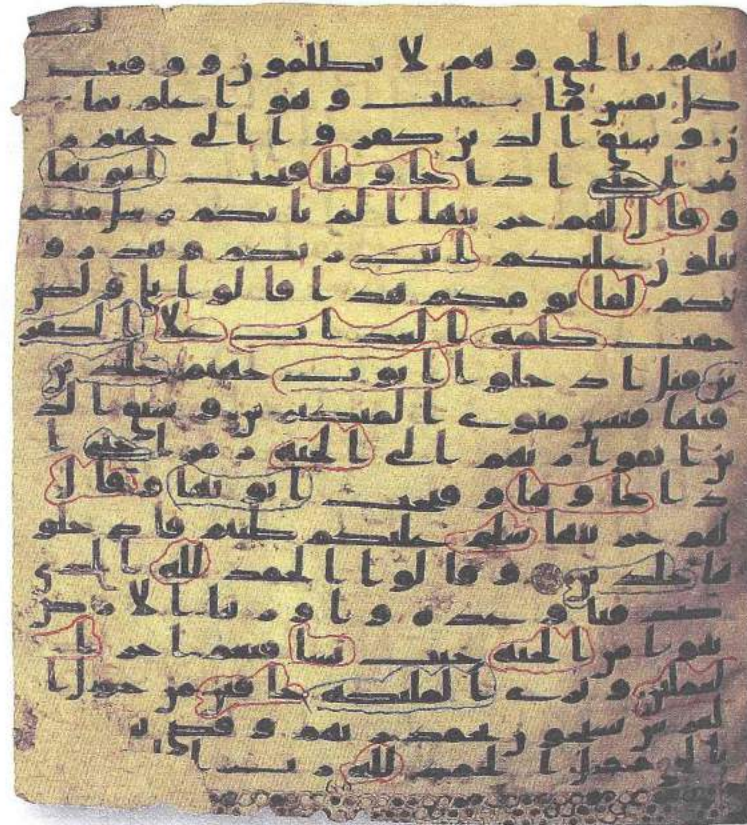 ينهم بالحق و هم لا يظلمون و وفيت
كل نفس ما عملت و هو اعلم بما يفعلو
ن و سيق الذين كفروا الى جهنم ز
مرا حتى اذا جاوها فتحت ابوبها
و قال لهم خزنتها الم ياتكم رسل منكم
يتلون عليكم ايت ربكم و ينذرو
نكم لقا يومكم هذا قالوا بلى و لكن
حقت كلمة العذاب علا الكفر
ين قيل ادخلوا ابوب جهنم خلدين
فيها فبئس مثوى المتكبرين و سيق الذ
ين اتقوا ربهم الى الجنة زمرا حتى ا
ذا جاوها و فتحت ابوبها و قال
لهم خزنتها سلم عليكم طبتم فادخلو
ها خلدين و قالوا الحمد لله الذي
صدقنا وعده و اورثنا الارض
نتبوا من الجنة حيث نشا فنعم اجر ا
لعملين و ترى الملئكة حافين من حول ا
لعرش يسبحون بحمد ربهم و قضي بينهم
بالحق و قيل الحمد لله رب العـ